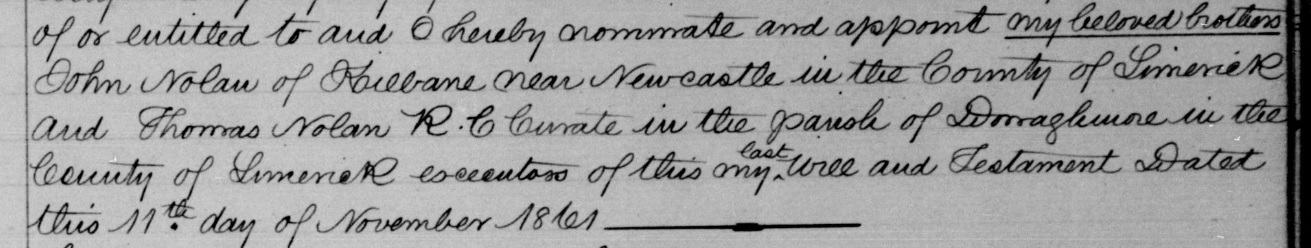 of or entitled to and I hereby nominate and appoint my beloved brothers
John Nolan of Kilbane near Newcastle in the County of Limerick
and Thomas Nolan R.C Curate in the parish of Donaghmore in the
County of Limerick executors of this my last Will and Testament Dated
this 11th day of November 1861